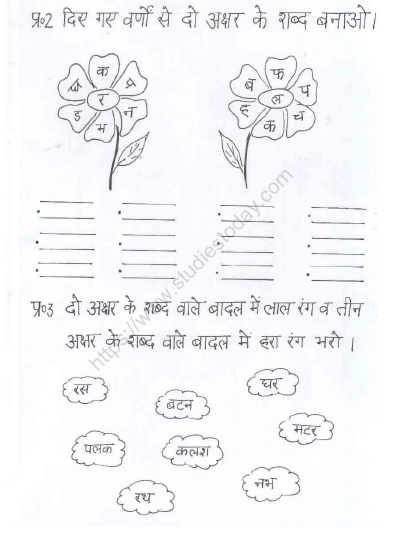 प्र०2 दिए गए वर्णों से दो अक्षर के शब्द बनाओ।
क
प्र
र
न
भ
ड
फ
ब
प
ल
ह
च
क
https://www.studiestoday.com
प्र०3 दो अक्षर के शब्द वाले बादल में लाल रंग व तीन
अक्षर के शब्द वाले बादल में हरा रंग भरो।
रस
घर
बटन
मटर
पलक
कलश
नभ
रथ